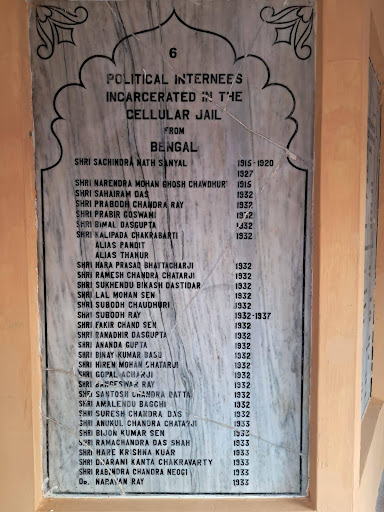 6
POLITICAL INTERNEES
INCARCERATED IN THE
CELLULAR JAIL
FROM
BENGAL
SHRI SACHINDRA NATH SANYAL 1915-1920
1927
SHRI NARENDRA MOHAN GHOSH CHAWDHURY 1915
SHRI SAHAIRAM DAS 1932
SHRI PRABODH CHANDRA RAY 1932
SHRI PRABIR GOSWAMI 1932
SHRI BIMAL DASGUPTA 1932
SHRI KALIPADA CHAKRABARTI 1932
ALIAS PANDIT
ALIAS THAKUR
SHRI HARA PRASAD BHATTACHARJI 1932
SHRI RAMESH CHANDRA CHATARJI 1932
SHRI SUKHENDU BIKASH DASTIDAR 1932
SHRI LAL MOHAN SEN 1932
SHRI SUBODH CHAUDHURI 1932
SHRI SUBODH RAY 1932-1937
SHRI FAKIR CHAND SEN 1932
SHRI RANADHIR DASGUPTA 1932
SHRI ANANDA GUPTA 1932
SHRI BINAY KUMAR BASU 1932
SHRI HIREN MOHAN CHATARJI 1932
SHRI GOPAL ACHARJI 1932
SHRI RAY 1932
SHRI SANTOSH CHANDRA DATTA 1932
SHRI AMALENDU BAGCHI 1932
SHRI SURESH CHANDRA DAS 1932
SHRI ANUKUL CHANDRA CHATARJI 1933
SHRI BIJON KUMAR SEN 1933
SHRI RAMACHANDRA DAS SHAH 1933
SHRI HARE KRISHNA KUAR 1933
SHRI DHARANI KANTA CHAKRAVARTY 1933
SHRI RABINDRA CHANDRA NEOGI 1933
Dr. NARAYAN RAY 1933